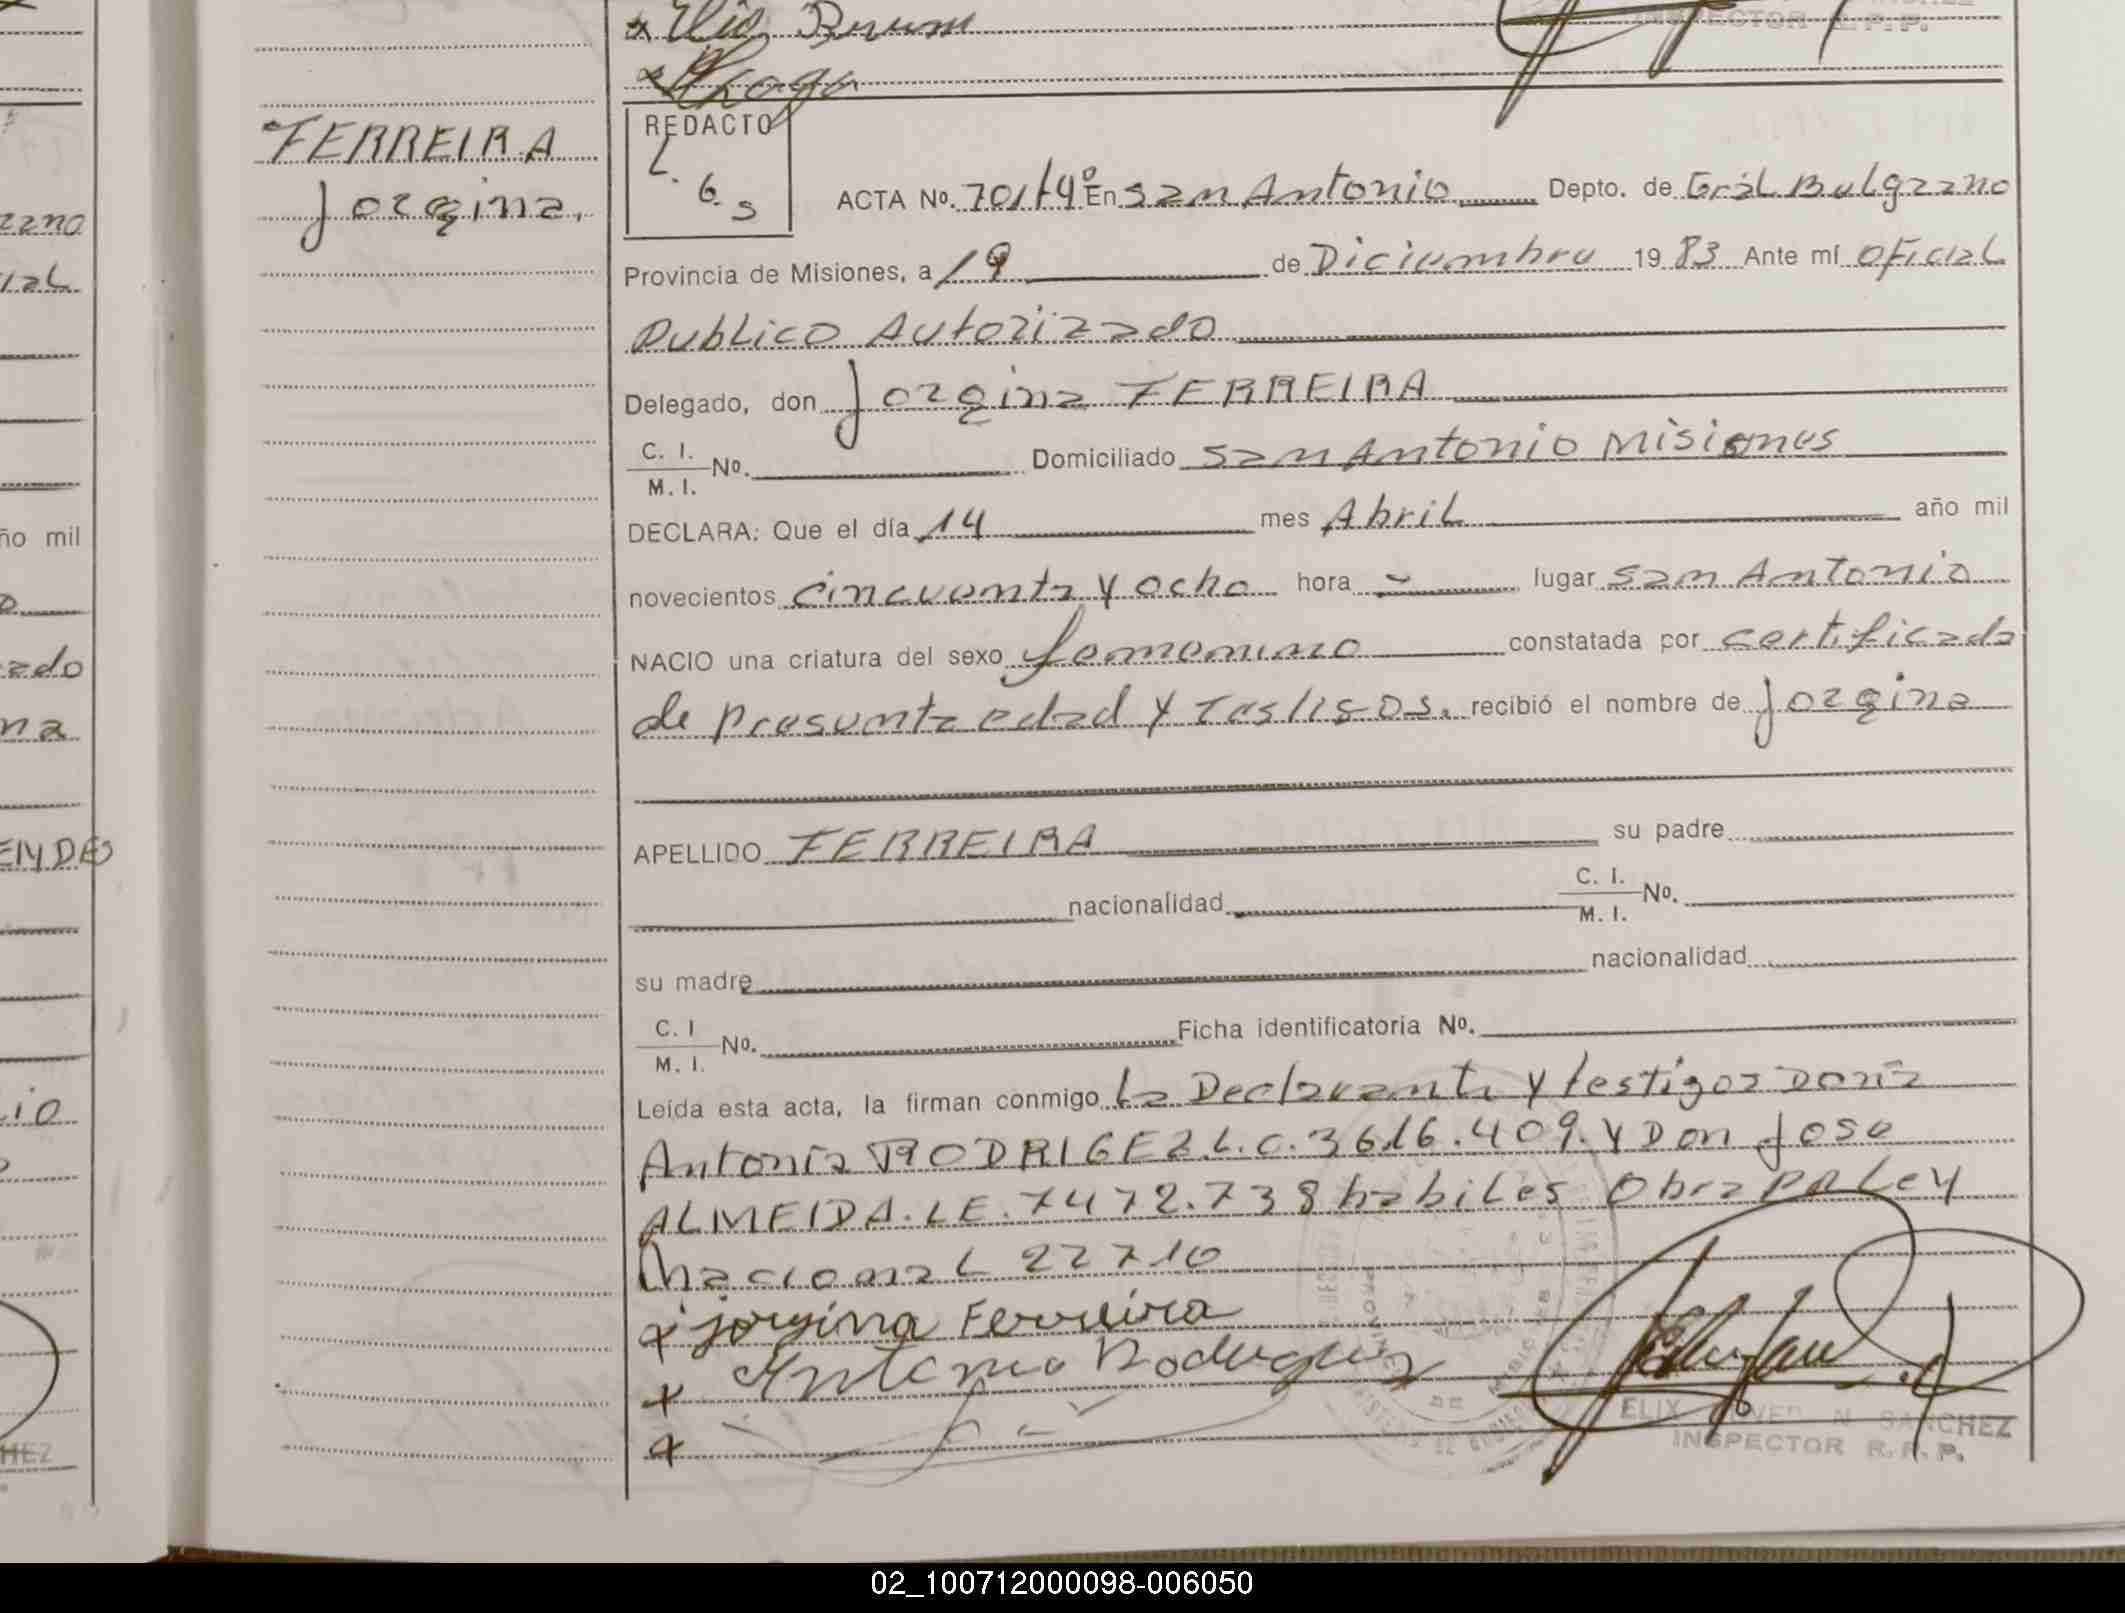 Elio Brum
INSPECTOR R.P.P.
FERREIRA
Jorgina.
REDACTO
L.
G. S
ACTA Nº. 701 T4º En San Antonio Depto. de Gral Belgrano
Provincia de Misiones, a 19 de Diciembre 1983 Ante mí Oficial
Publico Autorizado
Delegado, don Jorgina FERREIRA
C. I.
M. I. Nº. Domiciliado San Antonio Misiones
DECLARA: Que el día 14 mes Abril año mil
novecientos cincuenta y ocho hora - lugar San Antonio
NACIO una criatura del sexo femenino constatada por certificado
de presunta edad y Testigos. recibió el nombre de Jorgina
APELLIDO FERREIRA su padre
nacionalidad C. I.
M. I. Nº.
su madre nacionalidad
C. I
M. I. Nº. Ficha identificatoria Nº.
Leída esta acta, la firman conmigo La Declarante y testigos Doña
Antonia RODRIGEZ L.C. 3616.409. y Don Jose
ALMEIDA. L.E. 7472.738 habiles Obra por Ley
Nacional 22710
x jorgina Ferreira
x Antonia Rodriguez
x
SANCHEZ
INSPECTOR R.P.P.
zano
ial
ño mil
zado
na
ENDES
io
HEZ
02_100712000098-006050